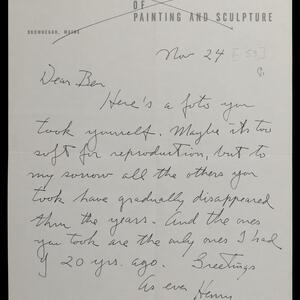 OF
PAINTING AND SCULPTURE
SKOWHEGAN, MAINE
Nov 24 [53]
Dear Ben
Here's a foto you
took yourself. Maybe its too
soft for reproduction, but to
my sorrow all the others you
took have gradually disappeared
thru the years. And the ones
you took are the only ones I had
of 20 yrs. ago. Greetings
As ever Henry